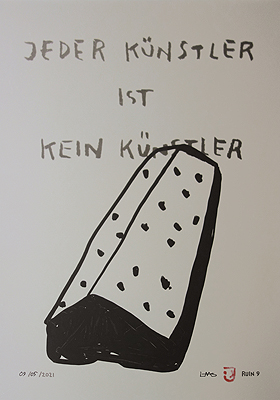 JEDER KÜNSTLER
IST
KEIN KÜNSTLER
09/05/2021
RUIN 9